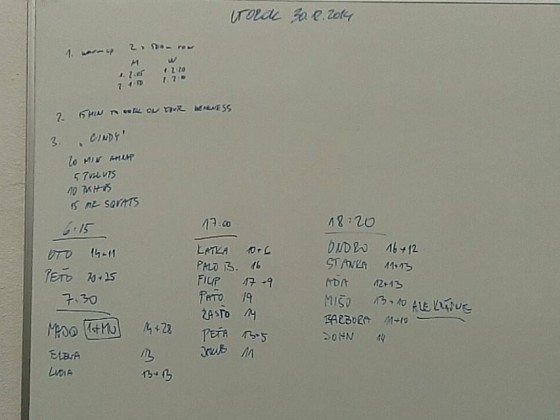 UTOROK 30.12.2014
1. warm up 2 x 500m row
M W
1. 2:05 1. 2:20
2. 1:50 2. 2:10
2. 15 MIN TO WORK ON YOUR WEAKNESS
3. "CINDY"
20 MIN AMRAP
5 PULLUPS
10 PUSHUPS
15 AIR SQUATS
6:15
OTO 14+11
PEŤO 20+25
7:30
MAJO 14+28
ELENA 13
LUCIA 13+13
17:00
KATKA 10+6
PALO B. 16
FILIP 17+9
PAŤO 19
RASŤO 14
PEŤA 13+5
JAKUB 11
18:20
ONDRO 16+12
STANKA 11+13
AĎA 12+13
MIŠO 13+10
BARBORA 11+10 ALE KĽIĆNE
JOHN 14